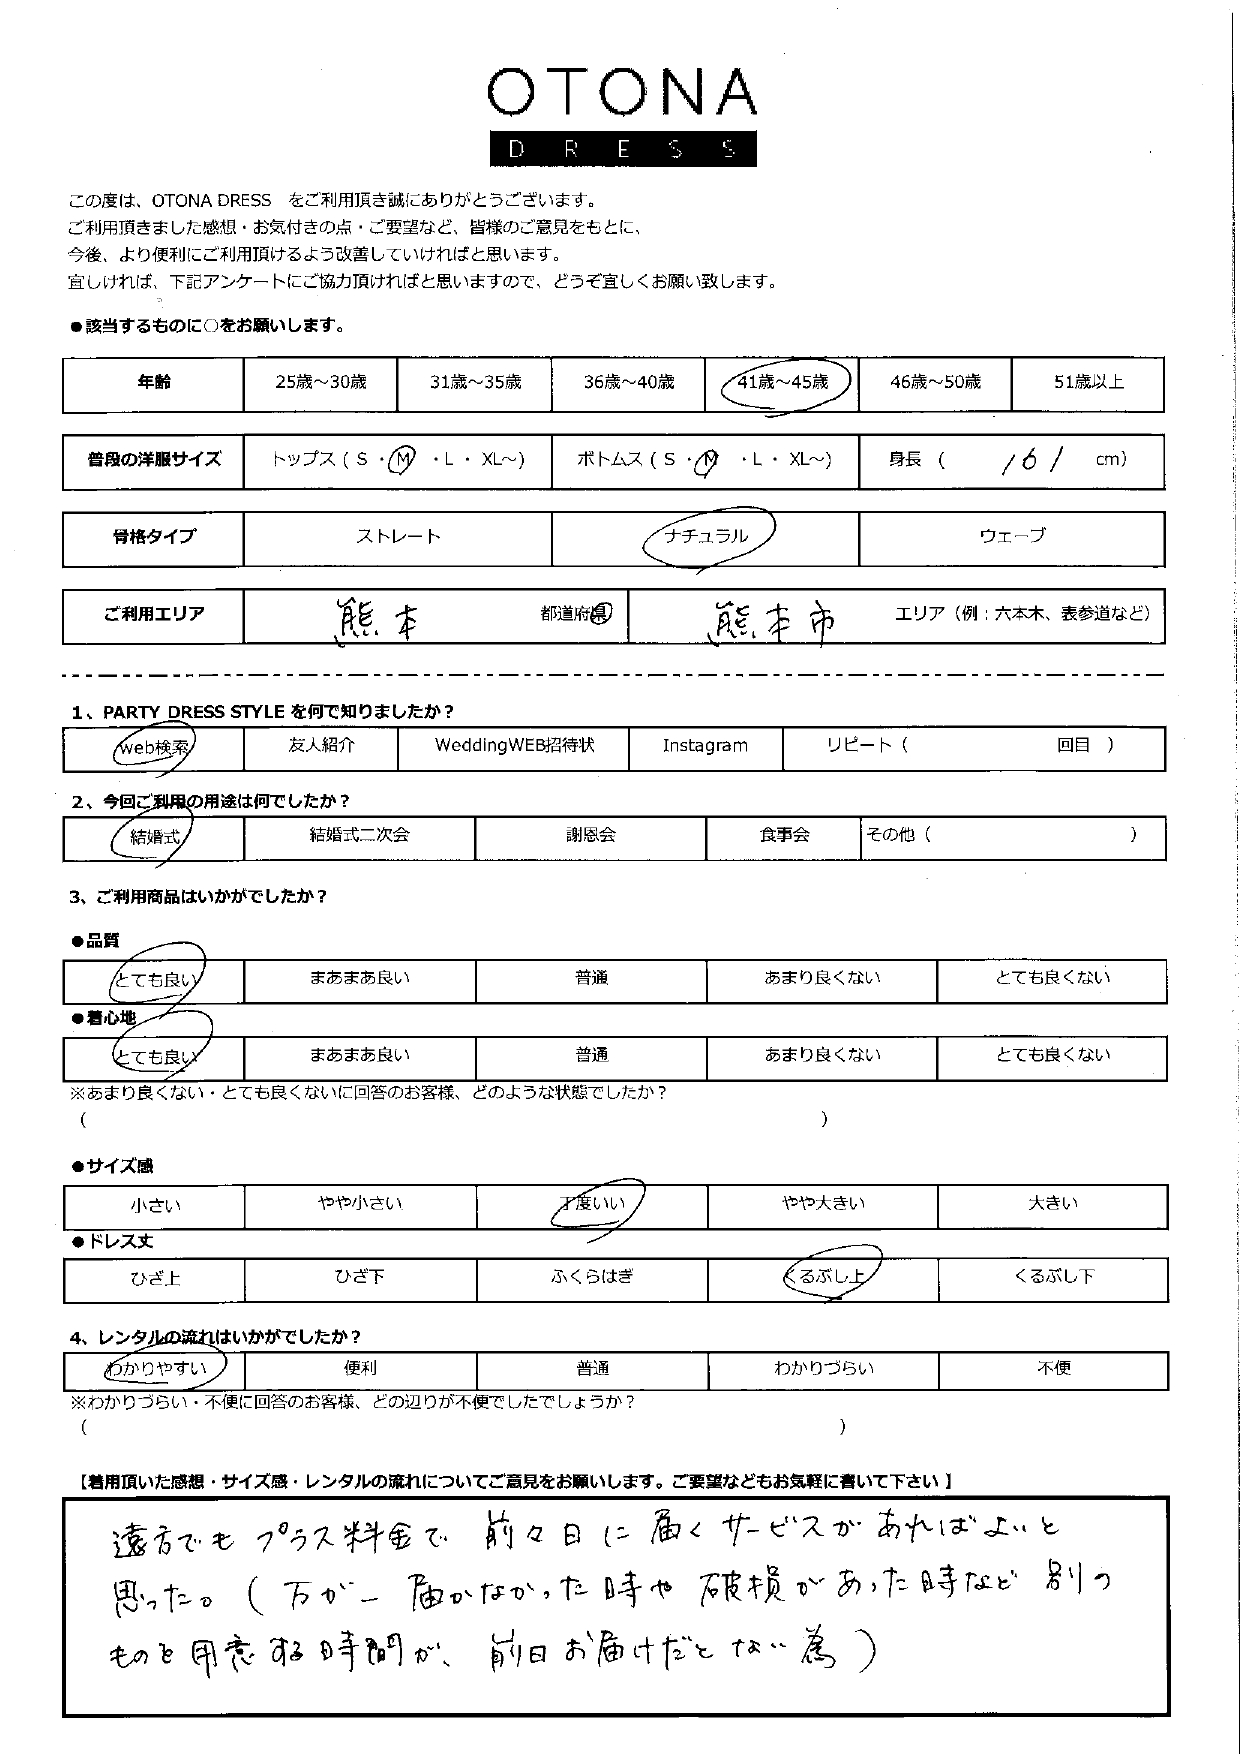 OTONA
DRESS
この度は、OTONA DRESS　をご利用頂き誠にありがとうございます。
ご利用頂きました感想・お気付きの点・ご要望など、皆様のご意見をもとに、
今後、より便利にご利用頂けるよう改善していければと思います。
宜しければ、下記アンケートにご協力頂ければと思いますので、どうぞ宜しくお願い致します。
●該当するものに○をお願いします。
年齢 25歳～30歳 31歳～35歳 36歳～40歳 41歳～45歳 46歳～50歳 51歳以上
普段の洋服サイズ トップス ( S ・ M ・ L ・ XL～) ボトムス ( S ・ M ・ L ・ XL～) 身長 ( 161 cm)
骨格タイプ ストレート ナチュラル ウェーブ
ご利用エリア 熊本 都道府県 熊本市 エリア（例：六本木、表参道など）
1、PARTY DRESS STYLE を何で知りましたか？
web検索 友人紹介 WeddingWEB招待状 Instagram リピート（ 回目 ）
2、今回ご利用の用途は何でしたか？
結婚式 結婚式二次会 謝恩会 食事会 その他（ ）
3、ご利用商品はいかがでしたか？
●品質
とても良い まあまあ良い 普通 あまり良くない とても良くない
●着心地
とても良い まあまあ良い 普通 あまり良くない とても良くない
※あまり良くない・とても良くないに回答のお客様、どのような状態でしたか？
（ ）
●サイズ感
小さい やや小さい 丁度いい やや大きい 大きい
●ドレス丈
ひざ上 ひざ下 ふくらはぎ くるぶし上 くるぶし下
4、レンタルの流れはいかがでしたか？
わかりやすい 便利 普通 わかりづらい 不便
※わかりづらい・不便に回答のお客様、どの辺りが不便でしたでしょうか？
（ ）
【着用頂いた感想・サイズ感・レンタルの流れについてご意見をお願いします。ご要望などもお気軽に書いて下さい 】
遠方でもプラス料金で前々日に届くサービスがあればよいと
思った。(万が一届かなかった時や破損があった時など別の
ものを用意する時間が、前日お届けだとない為)